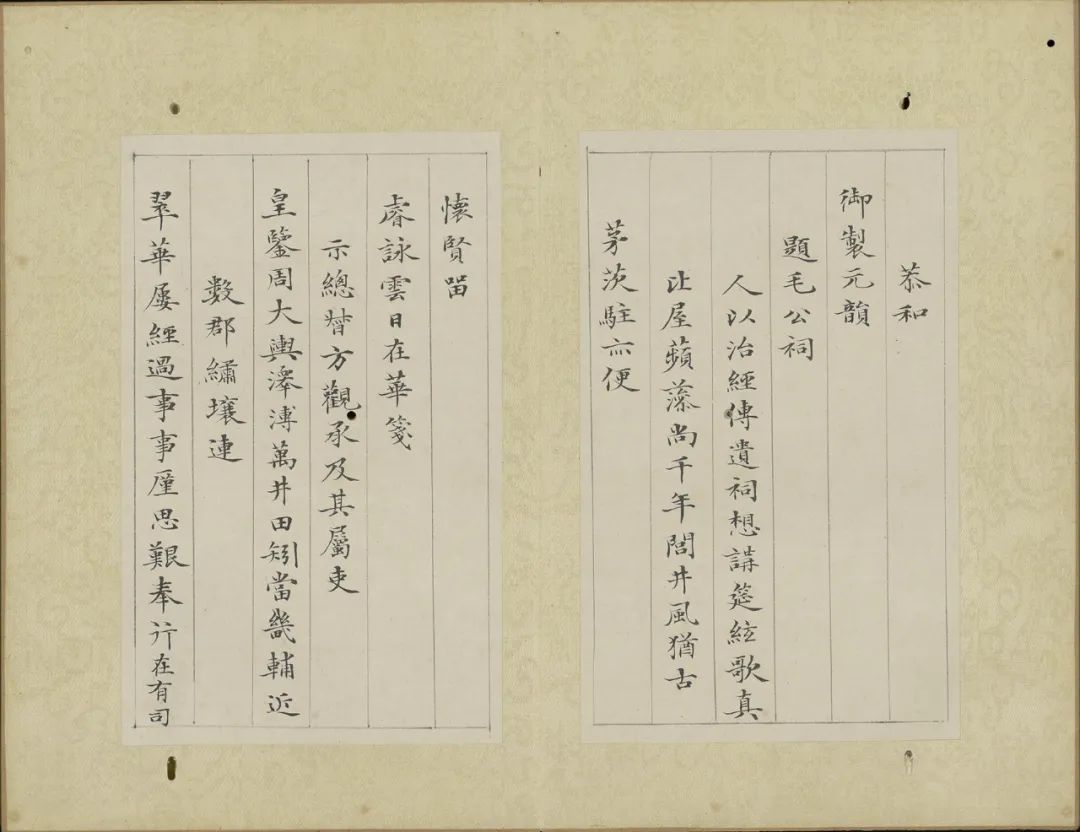 恭和
御製元韻
題毛公祠
人以治經傳遺祠想講筵絃歌真
比屋蘋藻尚千年閭井風猶古
茅茨駐亦便
懷賢留
睿詠雲日在華箋
示總督方觀承及其屬吏
皇鑒周大輿澤溥萬井田矧當畿輔近
數郡繡壤連
翠華屢經過事事廑思艱奉行在有司